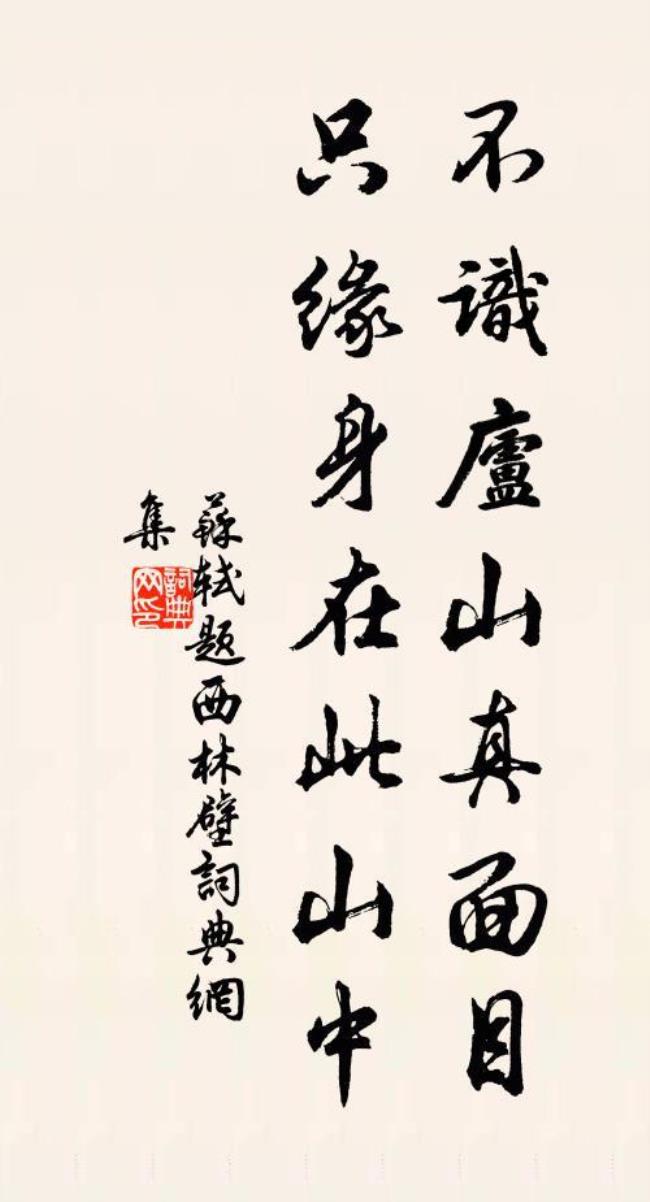 不識廬山真面目
只緣身在此山中
蘇軾題西林壁詞典網
集
詞典
网印